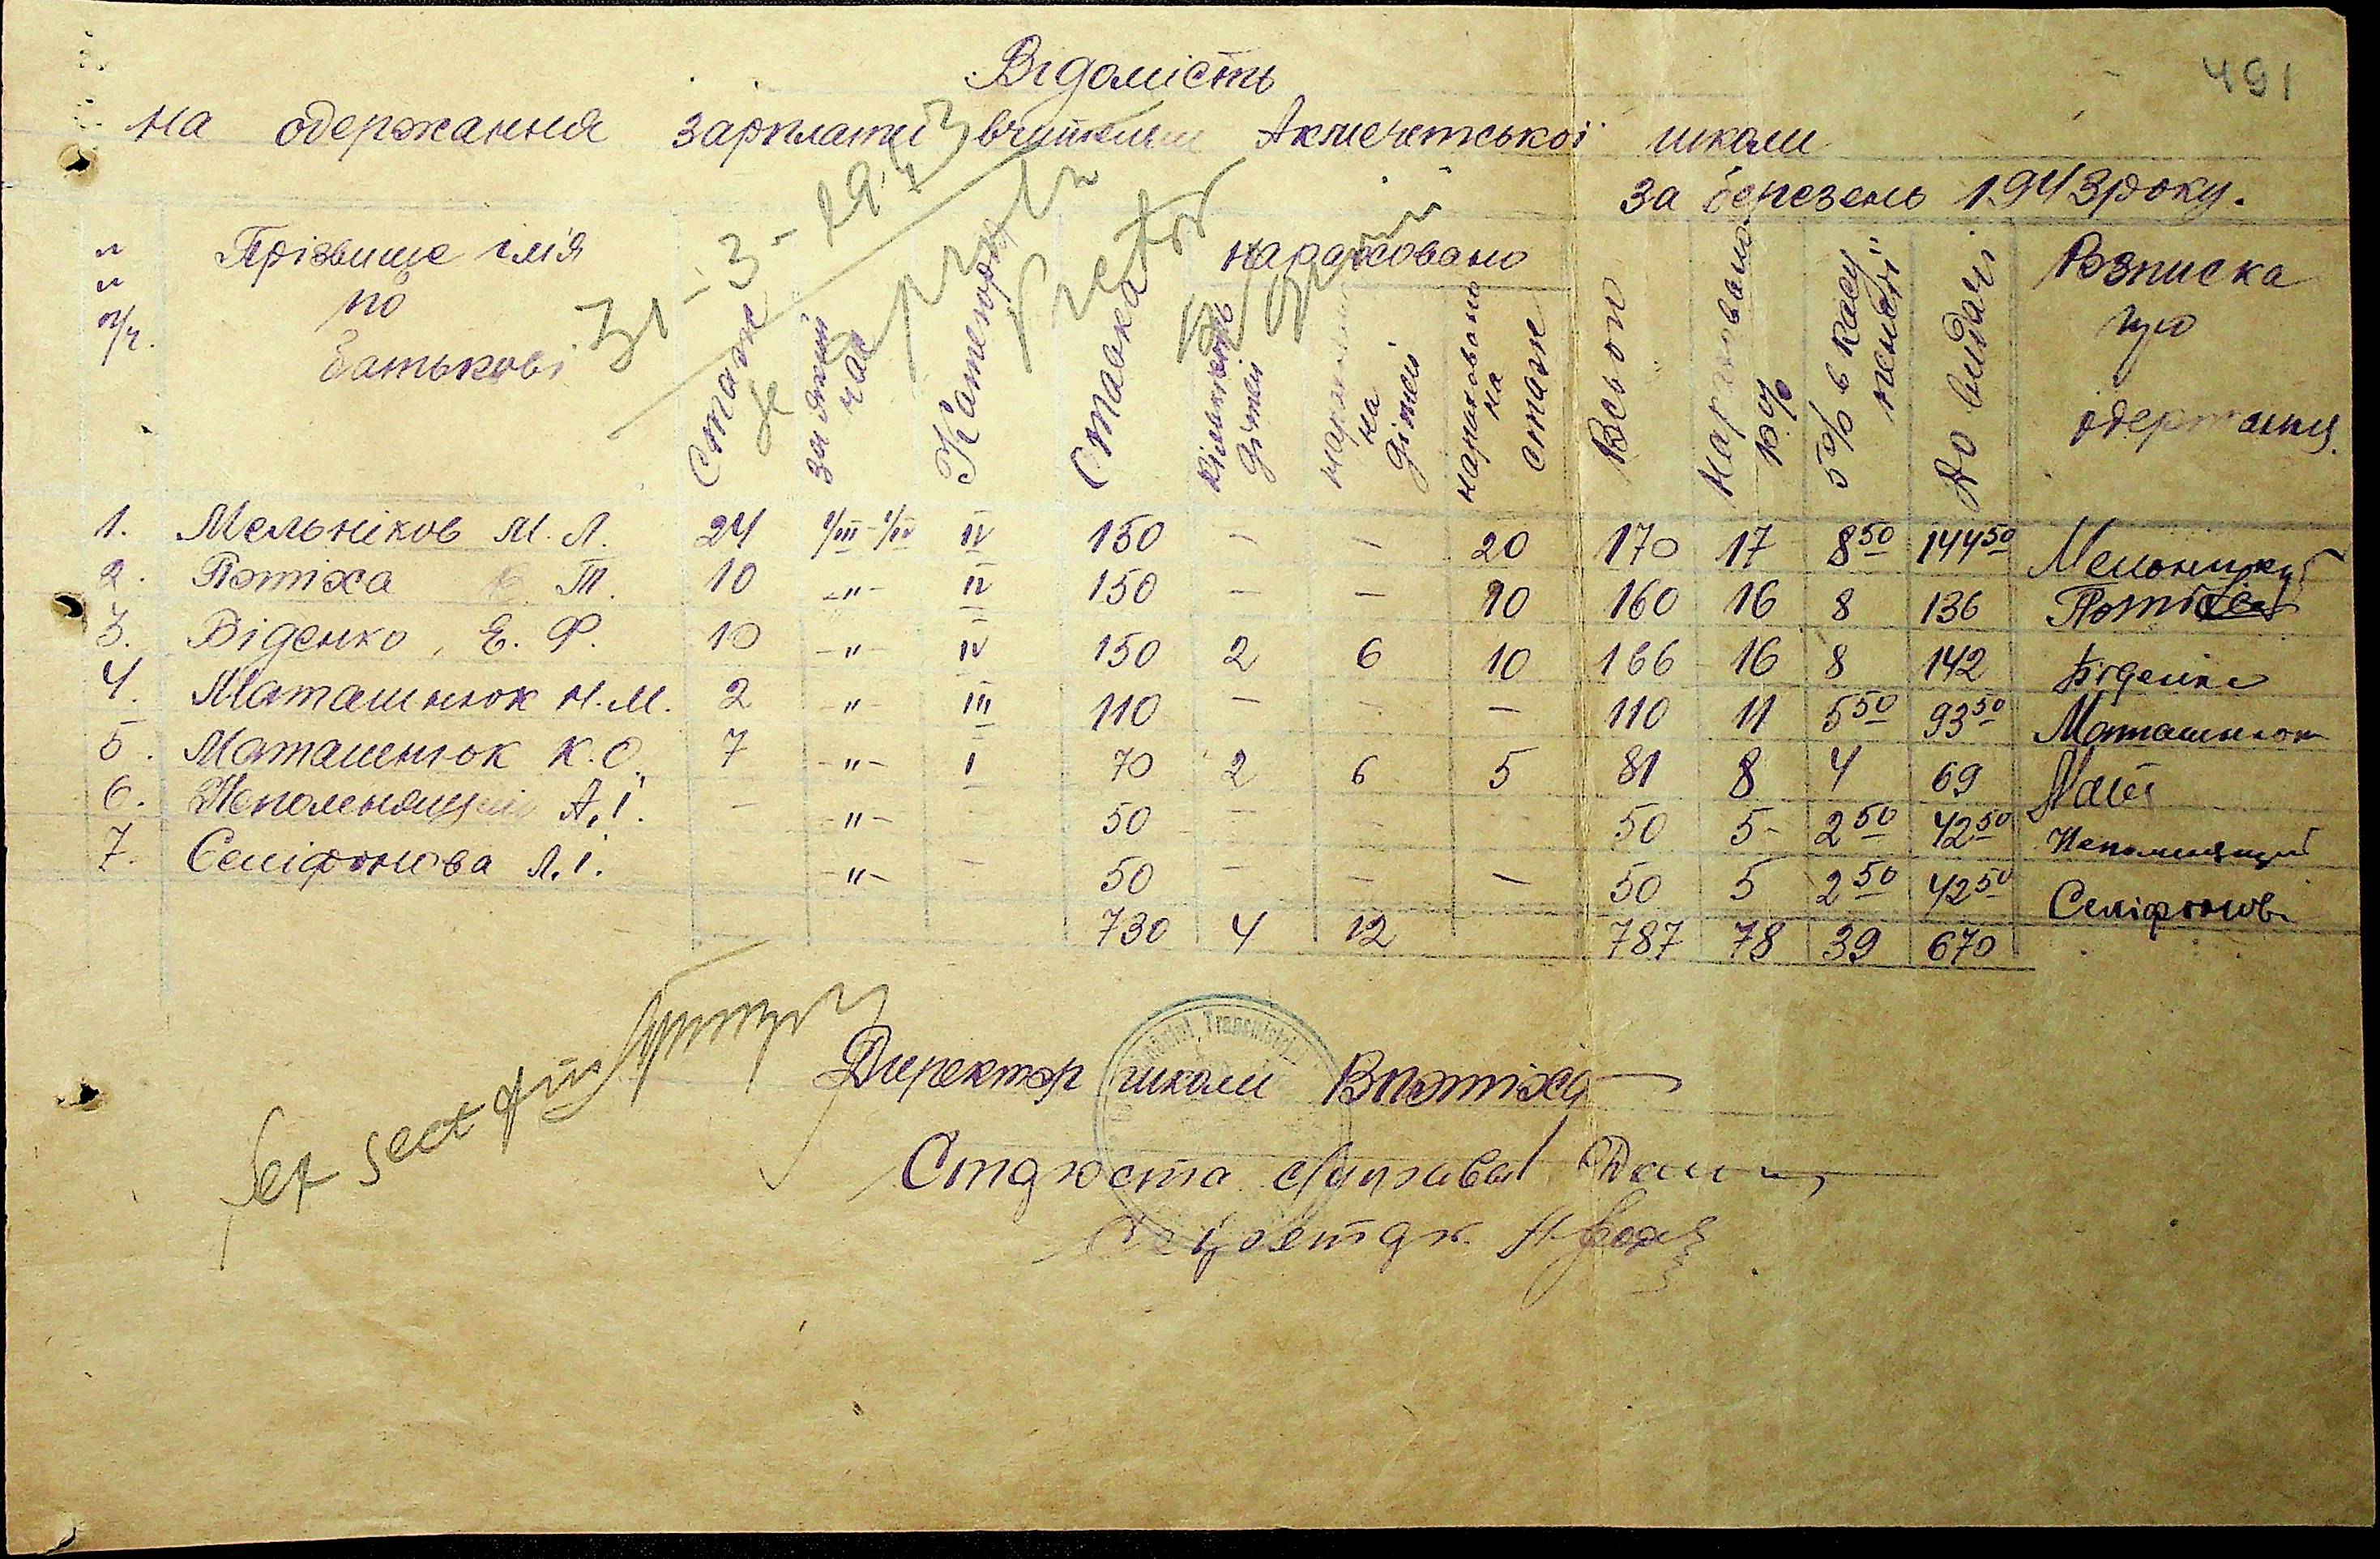 491
Відомість
на одержання зарплати вчителям Акмечетської школи
за березень 1943 року.
31-3-1943
Pretor
Прізвище ім'я
по
батькові
Стаж
за який час
Категорія
Ставка
нараховано
Кількість дітей
нараховано на дітей
нараховано на стаж
Всього
Нараховано 10%
5% в касу пенсії
До видачі
Розписка
про
одержання
1. Мельніков М. Л. 24 1/III-1/IV IV 150 - - 20 170 17 8 50 144 50 Мельников
2. Потіха Т. 10 -"- IV 150 - - 10 160 16 8 136 Потіха
3. Віденко, Е. Ф. 10 -"- IV 150 2 6 10 166 16 8 142 Віденко
4. Маташнюк Н. М. 2 -"- III 110 - - - 110 11 5 50 93 50 Маташнюк
5. Маташенюк К. О. 7 -"- I 70 2 6 5 81 8 4 69 Маш
6. Непомнящий А. І. - -"- - 50 - - - 50 5- 2 50 42 50 Непомнящий
7. Селіфонова Л. І. -"- - 50 - - - 50 5 2 50 42 50 Селіфонова
730 4 12 787 78 39 670
Директор школи ВПотіха
Староста
Секретар
Șef sect